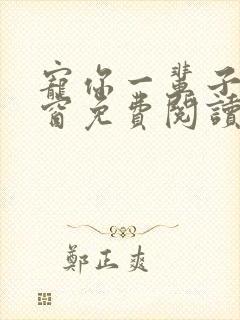 寵你一輩子
窗免費閱讀
鄭正爽